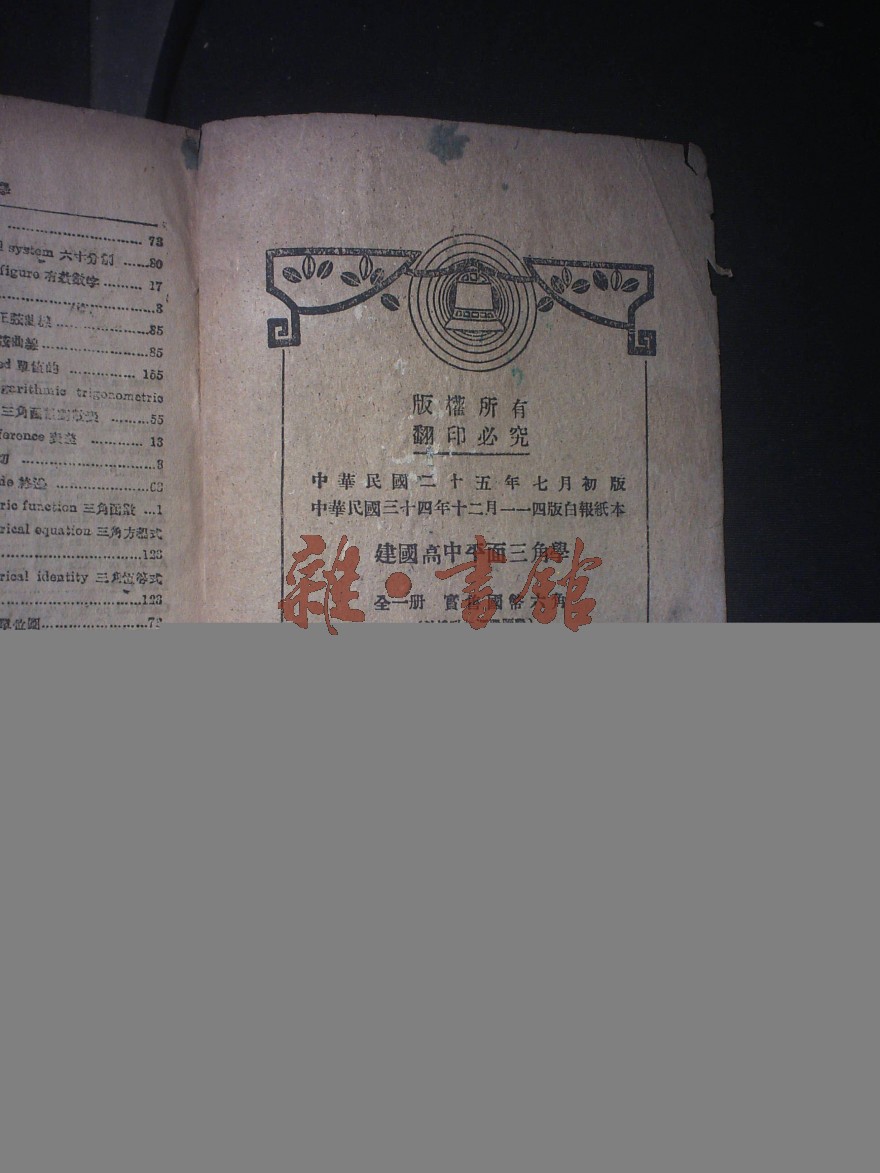 73
system 六十分制 ......80
figure 有效數字 ......... 17
3
正弦曲線 ..................85
曲線 ..........................85
單值的 ................ 155
garithmic trigonometric
三角函數對數表 ........55
ference 表差 ............ 13
切 ..............................8
終邊 ......................63
ric function 三角函數 ...1
rical equation 三角方程式
123
rical identity 三角恆等式
123
單位圓......................72
版權所有
翻印必究
中華民國二十五年七月初版
中華民國三十四年十二月一一四版白報紙本
建國高中平面三角學
全一册 實售國幣六角
雜·書館